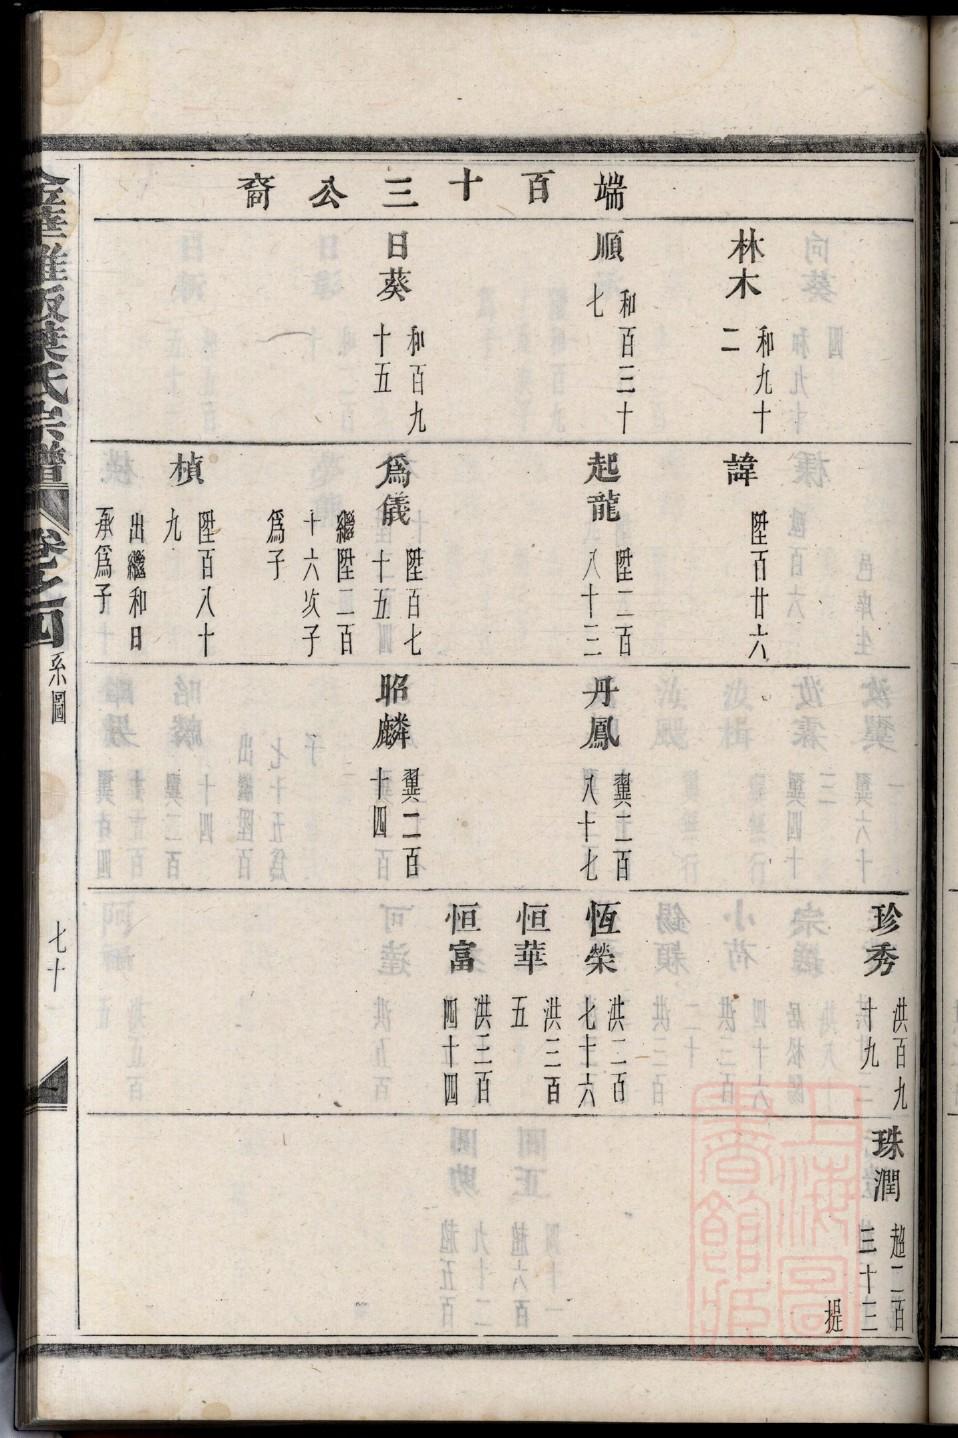 端百十三公裔
林木 和九十二
順 和百三十七
日葵 和百九十五
諱 陞百廿六
起龍 陞二百八十三
為儀 陞百七十五
繼陞二百十六次子為子
楨 陞百八十九
出繼和日承為子
丹鳳 翼二百八十七
昭麟 翼二百十四
珍秀 洪百九十九
恆榮 洪二百七十六
恒華 洪三百五
恒富 洪三百四十四
珠潤 超二百三十三
提
金華 板葉氏宗譜 卷之四 系圖 七十
上海圖書館藏